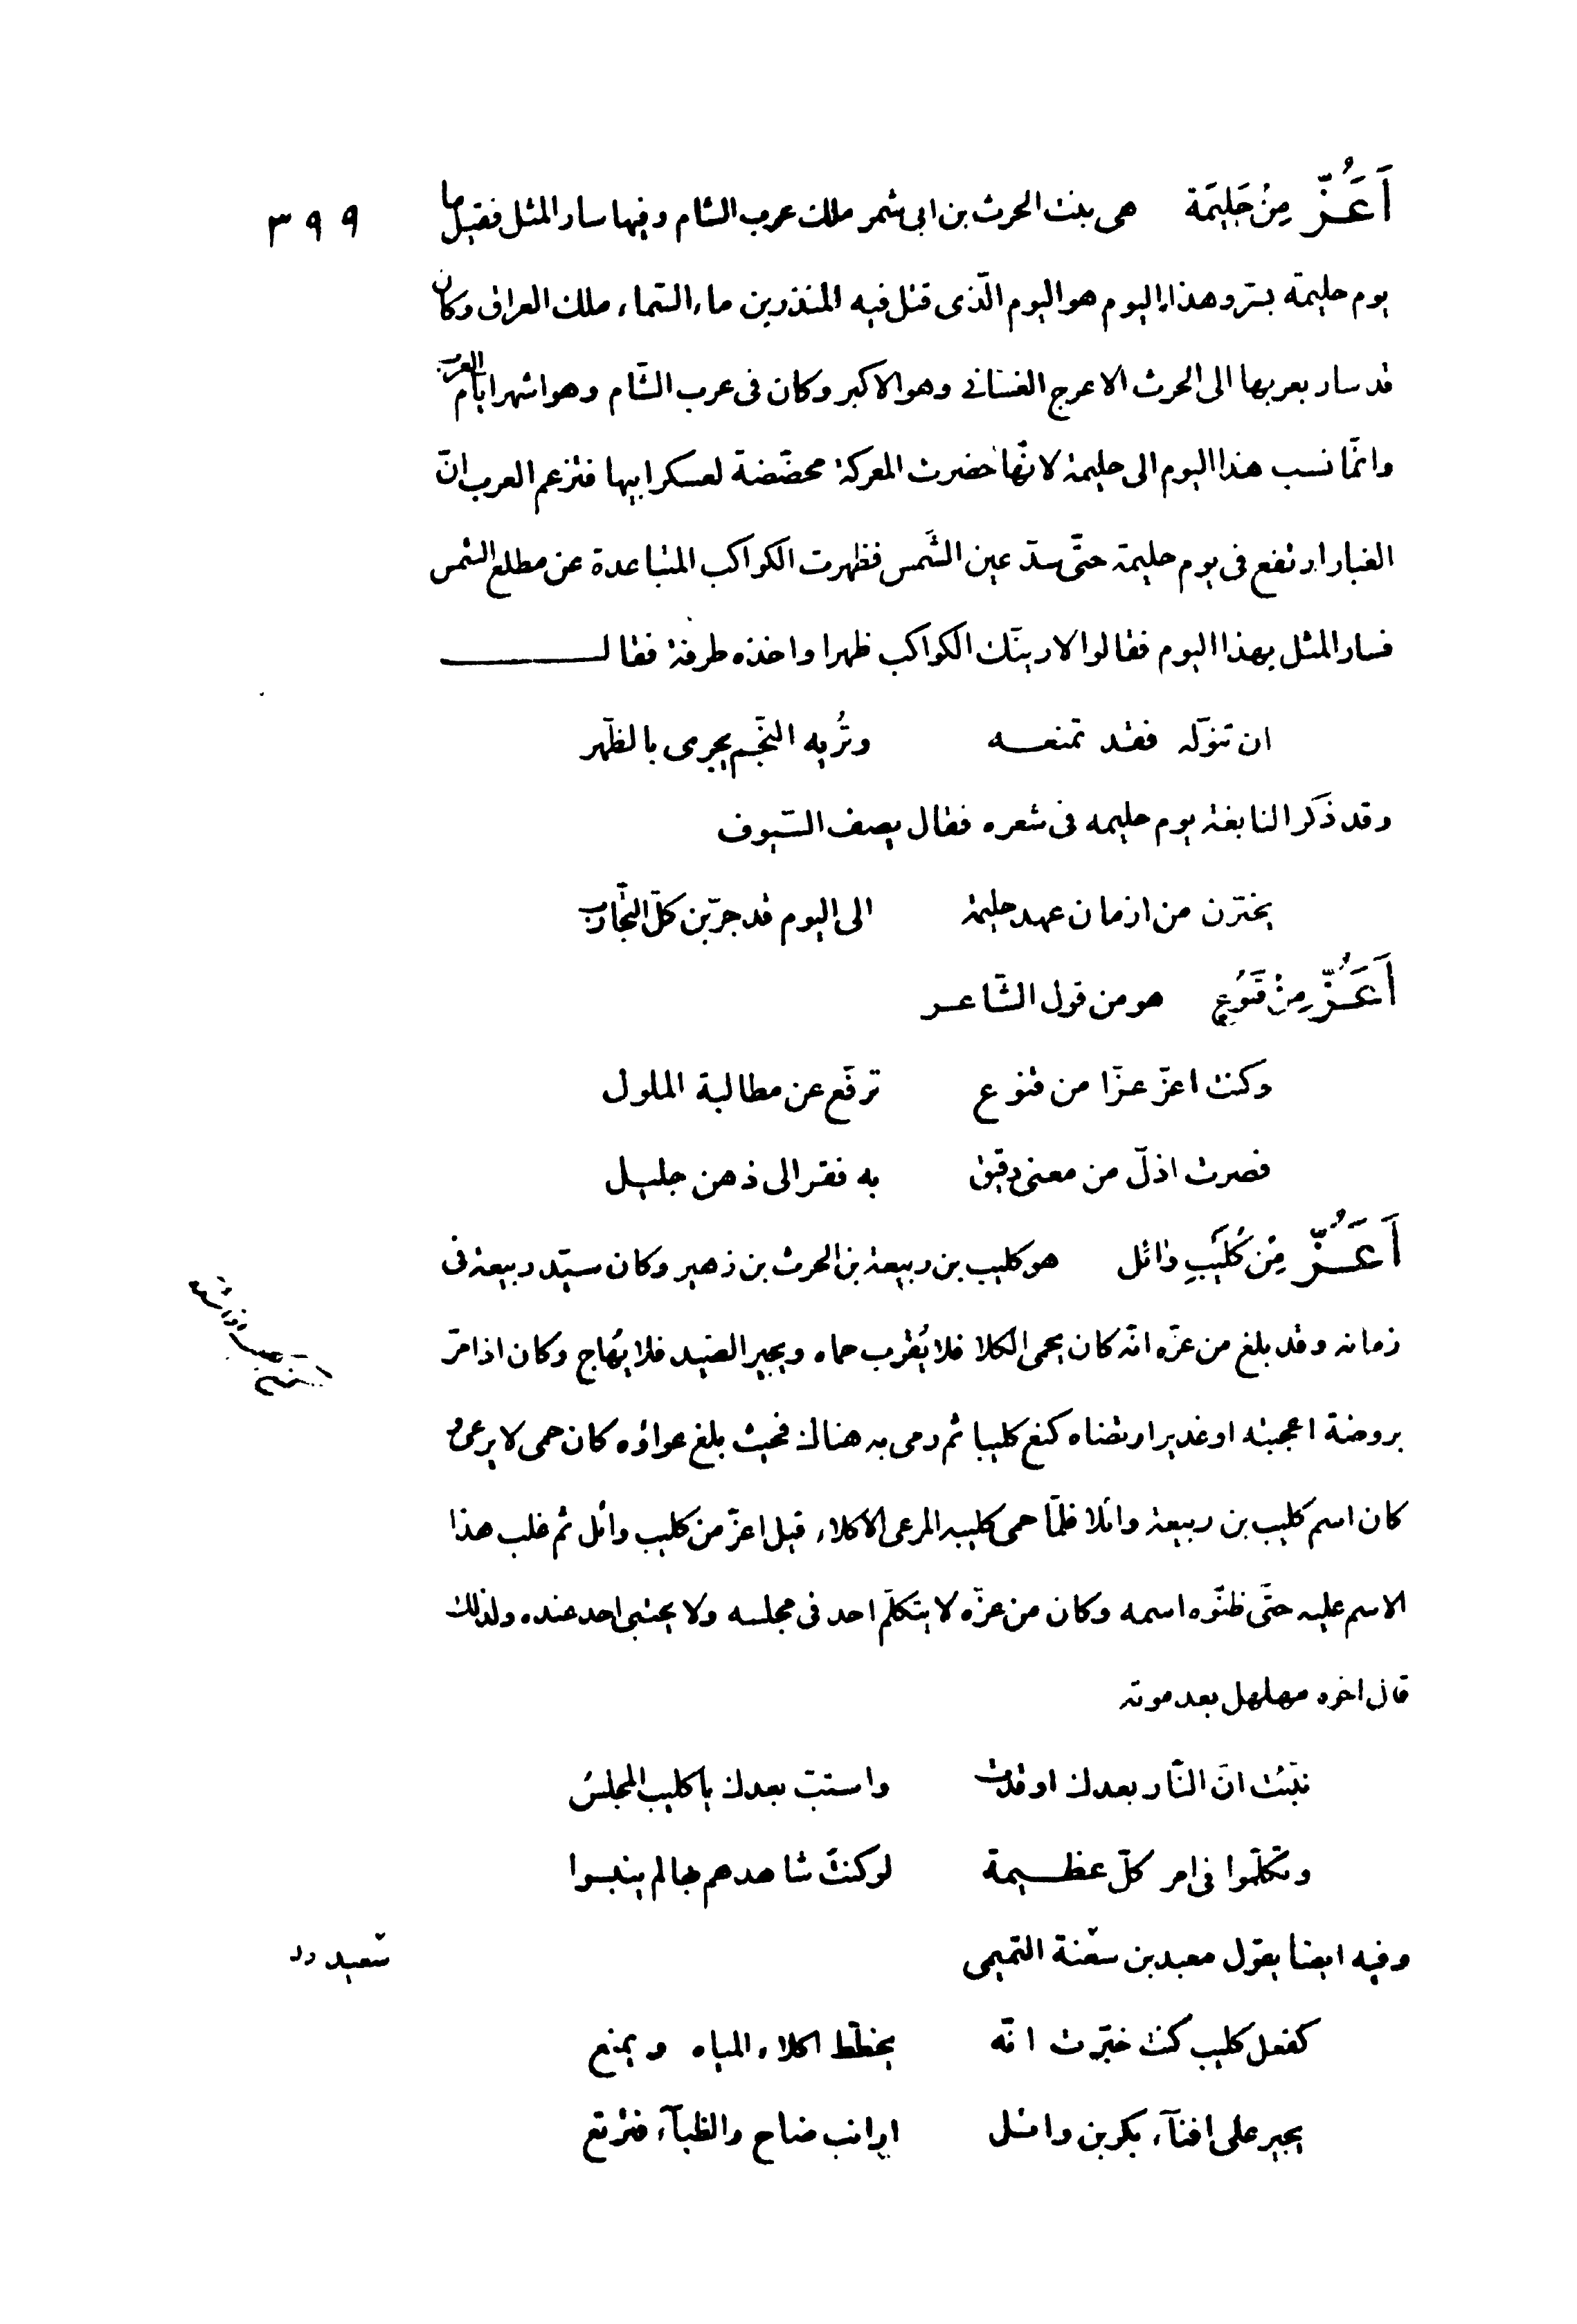 ٣٩٩
اَعَزُّ مِنْ حَلِيمَة هى بنت الحرث بن ابى شمر ملك عرب الشام وفيها سار المثل فقيل ما
يوم حليمة بسرّ وهذا اليوم هو اليوم الّذى قتل فيه المنذر بن ماء السّماء ملك العراق وكان
قد سار بعربها الى الحرث الاعرج الغسانى وهو الاكبر وكان فى عرب الشّام وهو اشهر ايّام العرب
وانّما نسب هذا اليوم الى حليمة لانّها حضرت المعركة محضّضة لعسكر ابيها فتزعم العرب انّ
الغبار ارتفع فى يوم حليمة حتّى سدّ عين الشّمس فظهرت الكواكب المتباعدة عن مطلع الشمس
فسار المثل بهذا اليوم فقالوا لارينّك الكواكب ظهرا واخذه طرفة فقال
ان تنوّله فقد تمنعه وتُريه النّجم يجرى بالظّهر
وقد ذَكر النابغة يوم حليمه فى شعره فقال يصف السّيوف
يخترن من ازمان عهد حليمة الى اليوم قد جرّبن كلّ التّجارب
اَعَزُّ مِنْ قَنُوعٍ هو من قول الشّاعر
وكنت اعزّ عزّا من قنوع ترفّع عن مطالبة الملول
فصرت اذلّ من معنى دقيق به فقر الى ذهن جليل
اَعَزُّ مِنْ كُلَيْبِ وائل هو كليب بن ربيعة بن الحرث بن زهير وكان سيّد ربيعة فى
زمانه وقد بلغ من عزّه انّه كان يحمى الكلا فلا يُقرب حماه ويجير الصّيد فلا يُهاج وكان اذا مرّ
بروضة اعجبته او غدير ارتضاه كنع كليبا ثم رمى به هناك فحيث بلغ عواؤه كان حمى لا يرعى و
كان اسم كليب بن ربيعة وائلا فلمّا حمى كليبه المرعى الاكلاء قيل اعزّ من كليب وائل ثم غلب هذا
الاسم عليه حتّى ظنّوه اسمه وكان من عزّه لا يتكلّم احد فى مجلسه ولا يحتبى احد عنده ولذلك
قال اخوه مهلهل بعد موته
نبّئت انّ النّار بعدك اوقدت واستبّ بعدك يا كليب المجلسُ
وتكلّموا فى امر كلّ عظيمة لو كنتَ شاهدهم بها لم ينبسوا
وفيه ايضا يقول معبد بن سعنة التميمى
كفعل كليب كنت خبّرت انّه يخطّط اكلاء المياه ويمنع
يجير على افنآء بكر بن وائل ارانب ضاح والظبآء فترتع